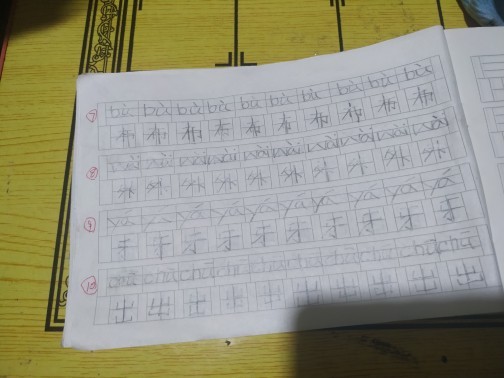 ⑦ bù bù bù bù bù bù bù bù bù bù
布 布 布 布 布 布 布 布 布 布
⑧ wài wài wài wài wài wài wài wài wài
外 外 外 外 外 外 外 外 外 外
⑨ yá yá yá yá yá yá yá yá yá
牙 牙 牙 牙 牙 牙 牙 牙 牙 牙
⑩ chū chū chū chū chū chū chū chū chū
出 出 出 出 出 出 出 出 出